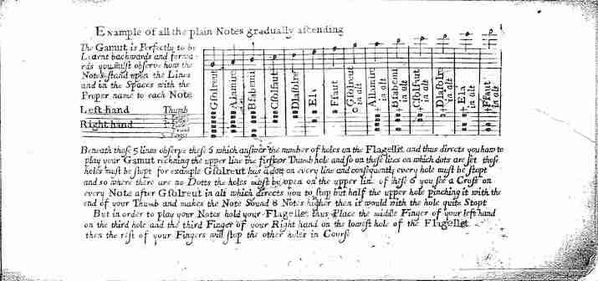 Example of all the plain Notes gradually aſcending
The Gamut is Perfectly to be
Learnt backwards and forwa-
rds you muſt obſerve how the
Notes ſtand upon the Lines
and in the Spaces with the
Proper name to each Note
Left hand Thumb
Right hand
Gſolreut Alamire Bfabemi Cſolfaut Dlaſolre Ela Ffaut Gſolreut in alt Alamire in alt Bfabemi in alt Cſolfaut in alt Dlaſolre in alt Ela in alt Ffaut in alt
Beneath theſe 5 lines obſerve theſe 6 which anſwer the number of holes on the Flagellet and thus directs you how to
play your Gamut reckoning the upper line the firſt or Thumb hole and ſo on theſe lines on which dots are ſet thoſe
holes muſt be ſtopt for example Gſolreut has a dot on every line and conſequently every hole muſt be ſtopt
and ſo where there are no Dotts the holes muſt by open on the upper line of theſe 6 you ſee a Croſs on
every Note after Gſolreut in alt which directs you to ſtop but half the upper hole pinching it with the
end of your Thumb and makes the Note Sound 8 Notes higher then it would with the hole quite Stopt
But in order to play your Notes hold your Flagellet thus Place the middle Finger of your left hand
on the third hole and the third Finger of your Right hand on the loweſt hole of the Flagellet
then the reſt of your Fingers will ſtop the other holes in Courſe